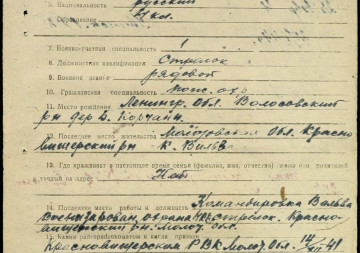 5. Национальность русский
6. Образование 4 кл.
7. Военно-учетная специальность 1
8. Должностная квалификация Стрелок
9. Военное звание рядовой
10. Гражданская специальность пож. охр
11. Место рождения Ленингр. Обл. Волосовский
рн дер. Б.
12. Последнее место жительства Молотовская Обл. Красно
вишерский рн К. Вильва
13. Где проживают в настоящее время семья (фамилия, имя, отчество) жены или родителей
точный их адрес Нет
14. Последнее место работы и должность Командировка Вильва
Военизирован. охрана стрелок. Красно-
вишерский рн. Молот. Обл.
15. Каким райвоенкоматом и когда призван
Красновишерским РВК Молот. Обл. 14/ 41